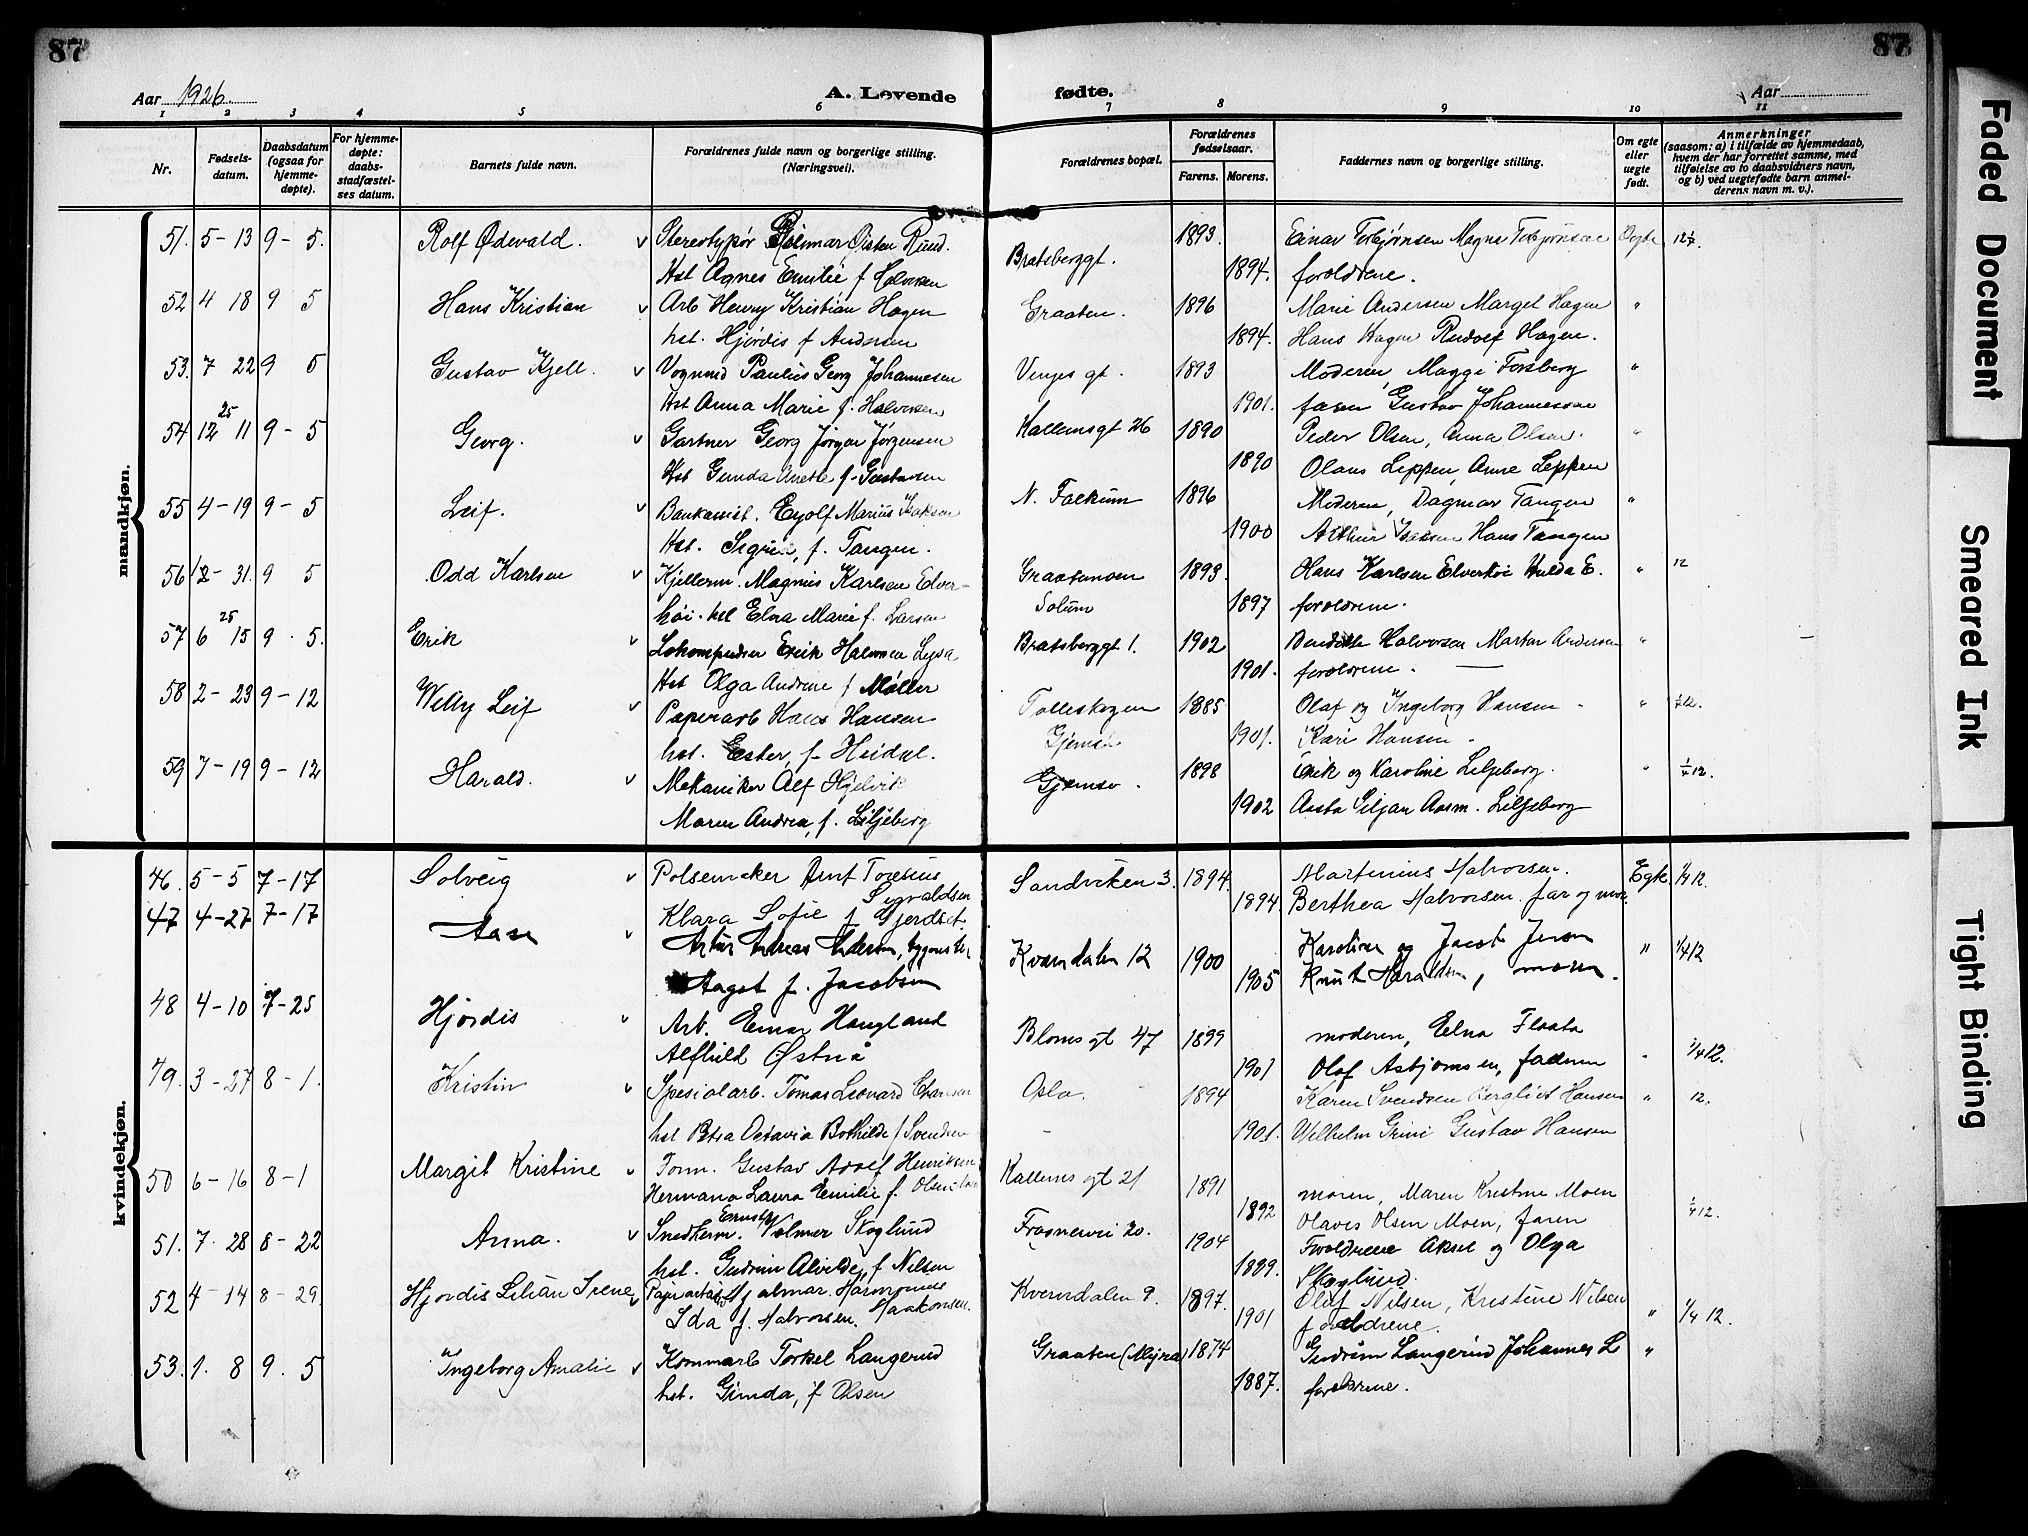 87
87
Aar 1926.
A. Levende
fødte.
Aar
1 2 3 4 5 6 7 8 9 10 11
Nr.
Fødsels-datum.
Daabsdatum (ogsaa for hjemme-døpte).
For hjemme-døpte: daabs-stadfæstel-ses datum.
Barnets fulde navn.
Forældrenes fulde navn og borgerlige stilling. (Næringsvei.)
Forældrenes bopæl.
Forældrenes fødselsaar.
Farens. Morens.
Faddernes navn og borgerlige stilling.
Om egte eller uegte født.
Anmerkninger
(saasom: a) i tilfælde av hjemmedaab, hvem der har forrettet samme, med tilføielse av to daabsvidners navn, og b) ved uegtefødte barn anmel-derens navn m. v.).
mandkjøn.
51. 5-13 9-5. Rolf Ødevald. v Stereotypør Øisten Ruud. Bratsberggt. 1893.
Hst Agnes Emilie f Halvorsen 1894. forældrene.
52 4 18 9 5 Hans Kristian v Arb Henry Kristian Hagen Graaten. 1896 Marie Andersen Margit Hagen "
hst. Hjørdis f Andersen 1894. Hans Hagen Rudolf Hagen.
53. 7 22 9 5 Gustav Kjell. v Vognmd Paulus Georg Johannesen Venjes gt. 1893 Moderen Maggi Forsberg "
Hst Anna Marie f. Halvorsen 1901. faren Gustav Johannessen
54 12 25 11 9-5 Georg. v Gartner Georg Jørgen Jørgensen Kallemsgt 26 1890 Peder Olsen, Anna Olsen. "
Hst Gunda f. Gustavsen 1890 Olaus Leppen, Anne Leppen
55 4-19 9-5 Leif. v Bankassist. Eyolf Marius Isaksen N. Falkum 1896 Moderen, Dagmar Tangen "
Hst. Sigrid, f. Tangen. 1900 Arthur Isaksen Hans Tangen
56 12-31. 9 5 Odd Karlsen v Kjellerm. Magnus Karlsen Elver- Graatenmoen 1893. Hans Karlsen Elverhøi Hulda E. " 12
høi. hst Elna Marie f. Larsen Solum 1897 forældrene.
57 6 25 15 9. 5. Erik v Erik Halvorsen Bratsberggt 1. 1902 Halvorsen Martin Andersen "
Hst Olga Andrine f Møller 1901. forældrene.
58 2-23 9-12 Willy Leif v Papirarb Hans Hansen Tolleskogen 1885 Olaf og Ingeborg Hansen - " 1/4 12.
hst. Ester, f. Heidal. Gjemsø 1901. Kari Hansen -
59 7-19 9-12 Harald. v Mekaniker Alf Hjelvik Gjemsø. 1898 Erik og Karoline Liljeberg. " 1/4 12.
Maren Andrea, f. Liljeberg 1902 Aasta Siljan Liljeberg
kvindekjøn.
46. 5-5 7-17 Solveig v Polsemaker Arnt Toresius Sigvaldsen Sandviken 3. 1894. Martinius Halvorsen. Egte. 1/4 12.
Klara Sofie f Gjerdset. 1894. Berthea Halvorsen. far og mor.
47 4-27 7-17 Aase v Artur Andreas Andersen, Kverndalen 12 1900 Karoline og Jacob Jensen " 1/4 12
Aagot f. Jacobsen 1905 Knut Haraldsen, moren.
48 4-10 7-25 Hjørdis v Arb. Einar Haugland Bloms gt 47 1899 moderen, Elna Flaata
Alfhild Østnå 1901 Olaf Asbjørnsen, faderen " 1/4 12.
49. 3-27 8-1. Kristin v Spesialarb. Tomas Leonard Oslo. 1894 Karen Svendsen Bergliot Hansen " 12.
hst Petra Octavia Bothilde f Svendsen - 1901. Wilhelm Grini Gustav Hansen
50 6-16 8-1 Margit Kristine v Tom. Gustav Adolf Henriksen Kallems gt 21 1891 moren, Maren Kristine Moen
Hermana Laura Emilie f. Olsen 1892 Olaves Olsen Moen, faren 1/4 12.
51. 7. 28 8-22 Anna. v Snedkerm. Ernst Volmer Skoglund Frognervei 20. 1904 Forældrene Aksel og Olga
hst. Gudrun Alvilde f Nilsen 1899. Skoglund.
52 4-14 8-29 Hjørdis Lilian Irene v Papirarbeid Hjalmar Haakonsen. Kverndalen 9. 1897. Oluf Nilsen, Kristine Nilsen
Ida f. Halvorsen. 1901 forældrene. " 1/4 12.
53. 1. 8 9. 5 Ingeborg Amalie v Kommarb Torkel Langerud Graaten (Myra) 1874 Gudrun Langerud Johannes L "
hst. Gunda, f Olsen 1887. forældrene.
Faded Document
Smeared Ink
Tight Binding